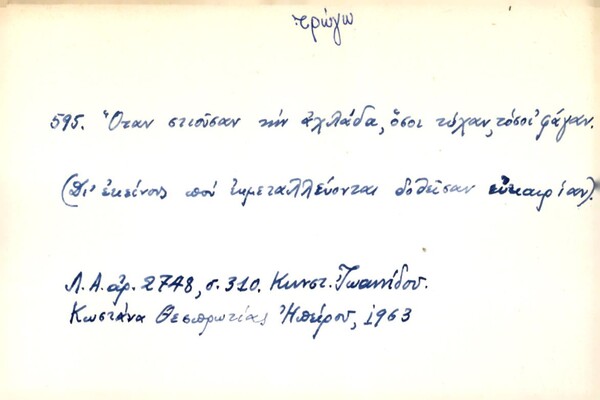 τρώγω
595. Ὅταν στιοῦσαν τὴν ἀχλάδα, ὅσοι τύχαν, τόσοι φάγαν.
(Δι' ἐκείνους ποὺ ἐκμεταλλεύονται δοθεῖσαν εὐκαιρίαν).
Λ.Α. ἀρ. 2748, σ. 310. Κωνστ. Ἰωαννίδου.
Κωστάνα Θεσπρωτίας Ἠπείρου, 1963